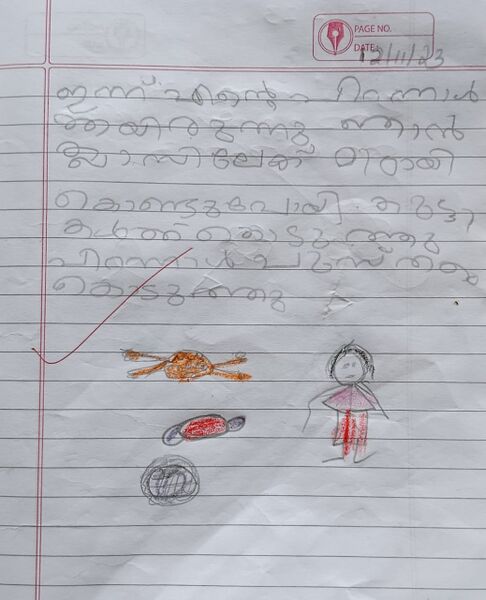 PAGE NO.
DATE: 12/11/23
ഇന്ന് എന്റെ പിറന്നാൾ
ആയിരുന്നു ഞാൻ
ക്ലാസിലേക് മിഠായി
കൊണ്ടുപോയി കുട്ടി
കൾക്ക് കൊടുത്തു
പിറന്നാൾ
കൊടുത്തു